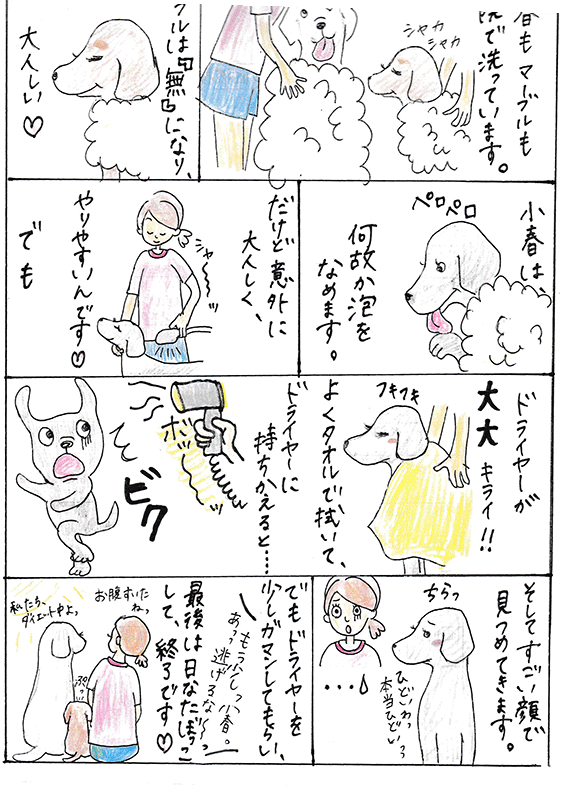 春も マーブルも
院で洗っています。
シャカ
シャカ
ブルは
『無』になり、
大人しい♡
小春は、
ペロペロ
何故か泡を
なめます。
だけど意外に
大人しく、
シャーッ
やりやすいんです♡
でも
ドライヤーが
大大キライ!!
フキフキ
よくタオルで、拭いて、
ドライヤーに
持ちかえると……
ボッ
ビク
そしてすごい顔で
見つめてきます。
ちらっ
ひどいわっ
本当ひどいっ
…
でもドライヤーを
少しガマンしてもらい、
もう少しっ、小春。
あっ、逃げるな〜っ
最後は日なたぼっこ
して、終了です♡
お腹すいた
ねっ
私たち、
ダイエット中よっ